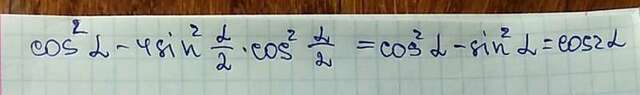 cos² α - 4 sin² α/2 · cos² α/2 = cos² α - sin² α = cos 2α